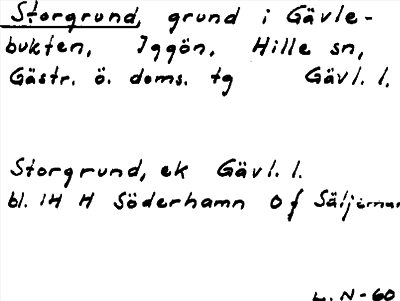 Storgrund, grund i Gävle-
bukten, Iggön, Hille sn,
Gästr. ö. doms. tg Gävl. l.
Storgrund, ek Gävl. l.
bl. 14 H Söderhamn Of
L. N-60